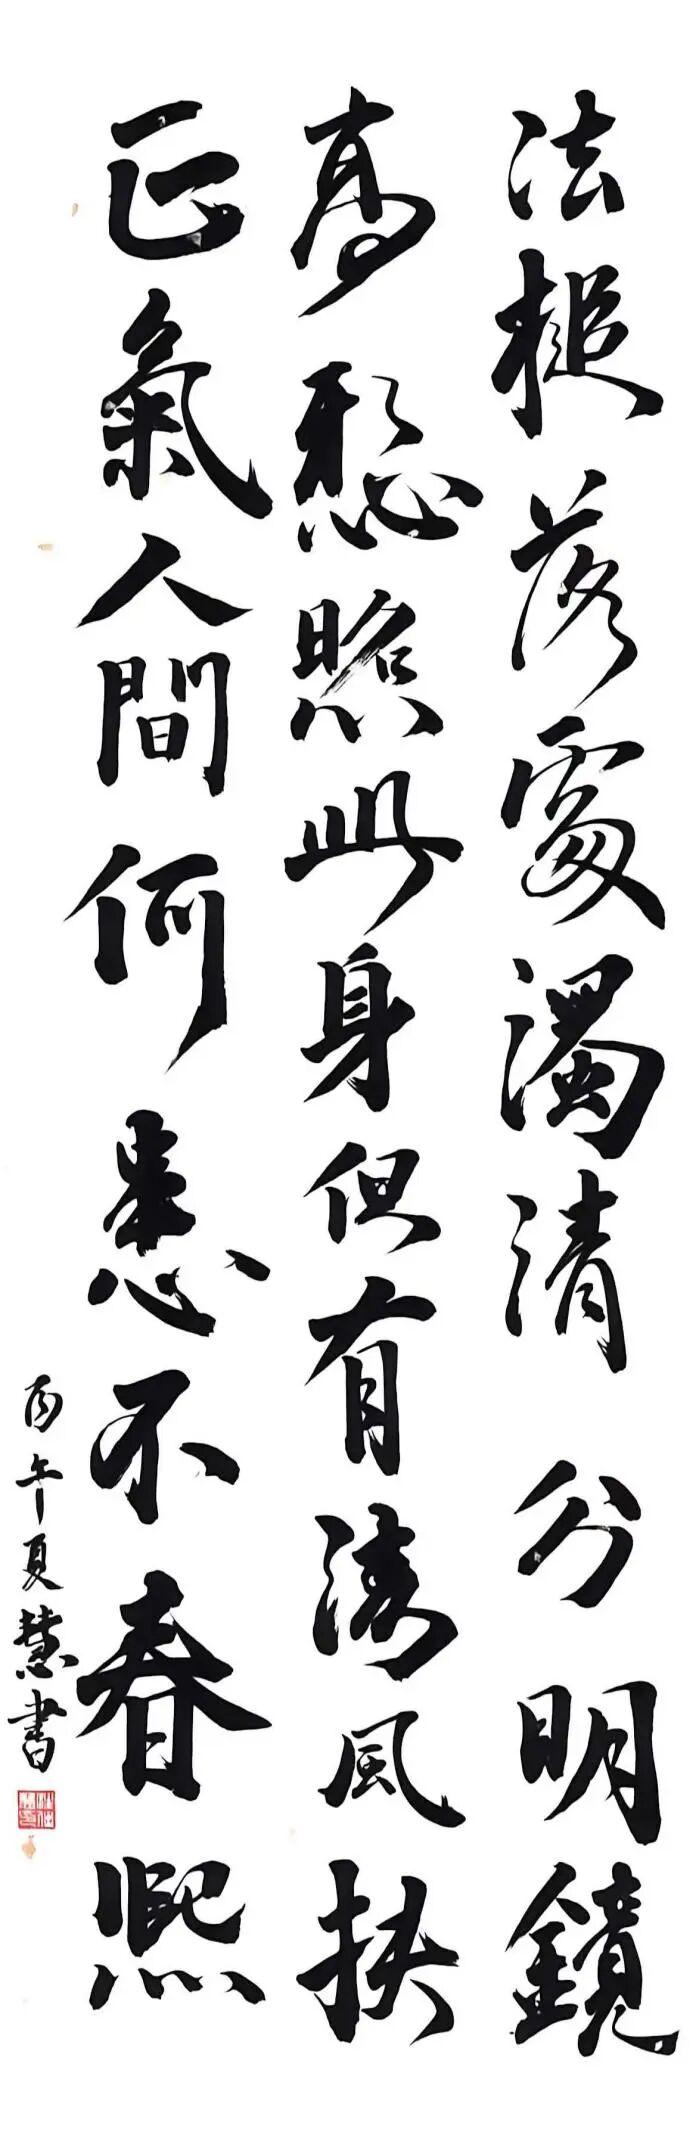 法槌落處濁清分明鏡
高懸照此身但有清風扶
正氣人間何患不春熙
丙午夏慧書